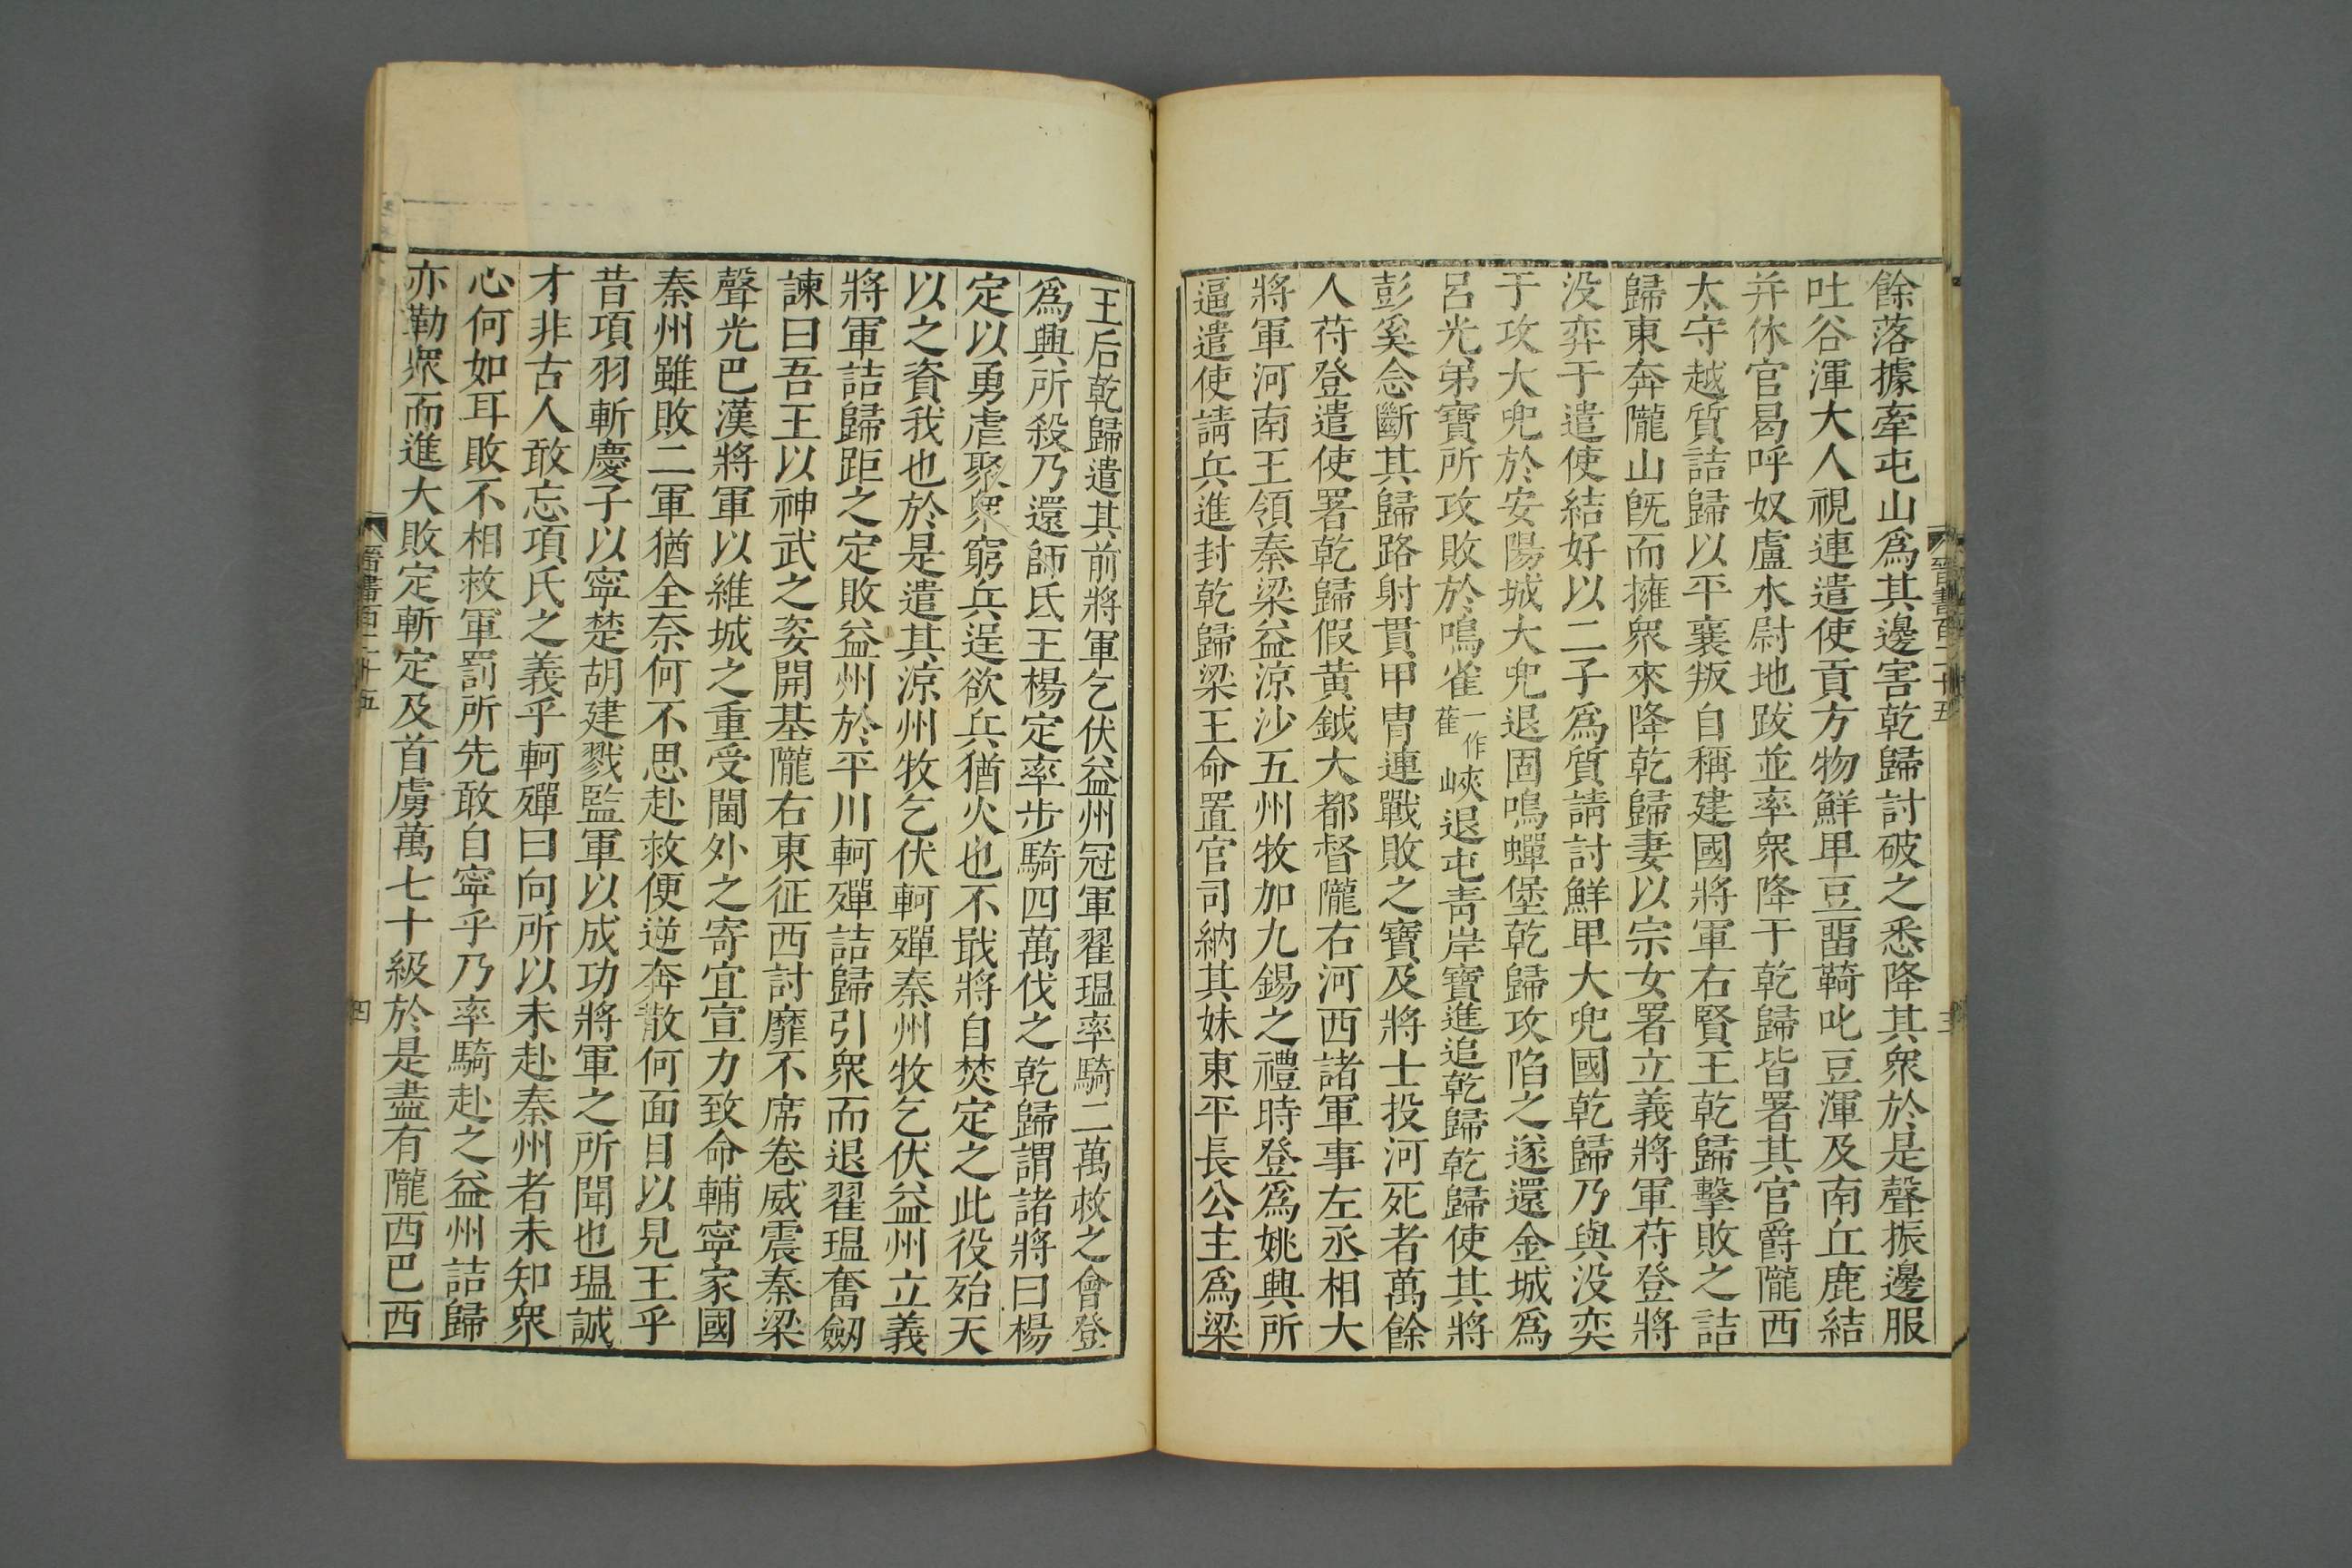 餘落據牽屯山爲其邊害乾歸討破之悉降其衆於是聲振邊服
吐谷渾大人視連遣使貢方物鮮卑豆畱䩭叱豆渾及南丘鹿結
并休官曷呼奴盧水尉地跋並率衆降于乾歸皆署其官爵隴西
太守越質詰歸以平襄叛自稱建國將軍右賢王乾歸擊敗之詰
歸東奔隴山旣而擁衆來降乾歸妻以宗女署立義將軍苻登將
没弈于遣使結好以二子爲質請討鮮卑大兜國乾歸乃與没奕
于攻大兜於安陽城大兜退固鳴蟬堡乾歸攻陷之遂還金城爲
呂光弟寶所攻敗於鳴雀一作萑峽退屯青岸寶進追乾歸乾歸使其將
彭奚念斷其歸路躬貫甲冑連戰敗之寶及將士投河死者萬餘
人苻登遣使署乾歸假黃鉞大都督隴右河西諸軍事左丞相大
將軍河南王領秦梁益涼沙五州牧加九錫之禮時登爲姚興所
逼遣使請兵進封乾歸梁王命置官司納其妹東平長公主爲梁
晉書百二十五
三
王后乾歸遣其前將軍乞伏益州冠軍翟瑥率騎二萬救之會登
爲興所殺乃還師氐王楊定率步騎四萬伐之乾歸謂諸將曰楊
定以勇虐聚衆窮兵逞欲兵猶火也不戢將自焚定之此役殆天
以之資我也於是遣其涼州牧乞伏軻殫秦州牧乞伏益州立義
將軍詰歸距之定敗益州於平川軻殫詰歸引衆而退翟瑥奮劒
諫曰吾王以神武之姿開基隴右東征西討靡不席卷威震秦梁
聲光巴漢將軍以維城之重受閫外之寄宜宣力致命輔寧家國
秦州雖敗二軍猶全奈何不思赴救便逆奔散何面目以見王乎
昔項羽斬慶子以寧楚胡建戮監軍以成功將軍之所聞也瑥誠
才非古人敢忘項氏之義乎軻殫曰向所以未赴秦州者未知衆
心何如耳敗不相救軍罰所先敢自寧乎乃率騎赴之益州詰歸
亦勒衆而進大敗定斬定及首虜萬七十級於是盡有隴西巴西
晉書百二十五
四